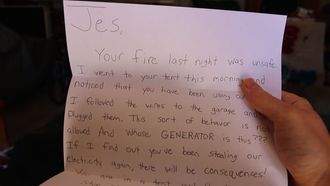 Jes,
Your fire last night was unsafe
I went to your tent this morning and
noticed that you have been using our
I followed the wires to the garage and
plugged them. This sort of behavior is not
allowed And whose GENERATOR is this???
If I find out you've been stealing our
electricity again, there will be consequences!
You are in a tent